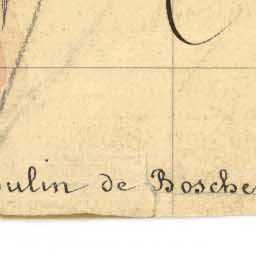 oulin de Bosche